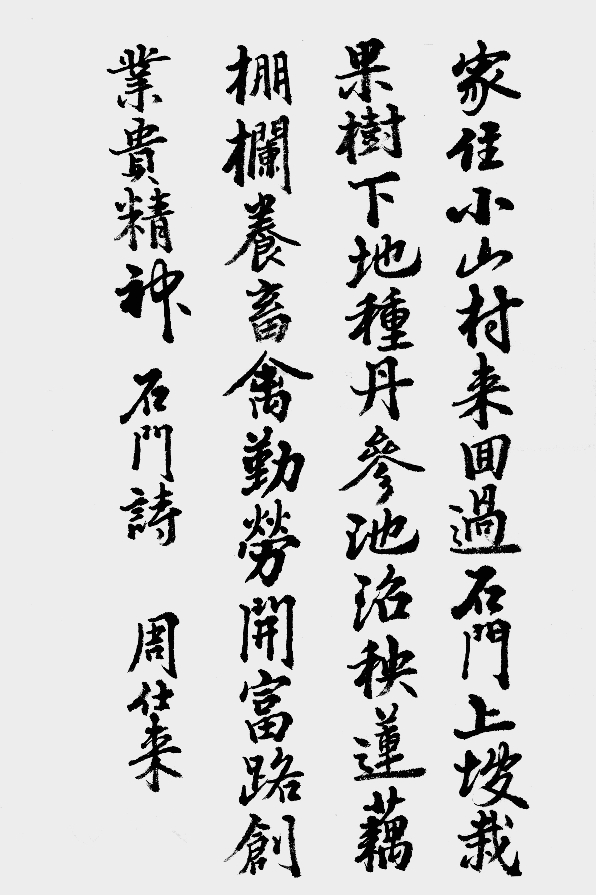 家住小山村来回過石門上坡栽
果樹下地種丹參池沼秧蓮藕
棚欄養畜禽勤勞開富路創
業貴精神 石門詩 周仕来